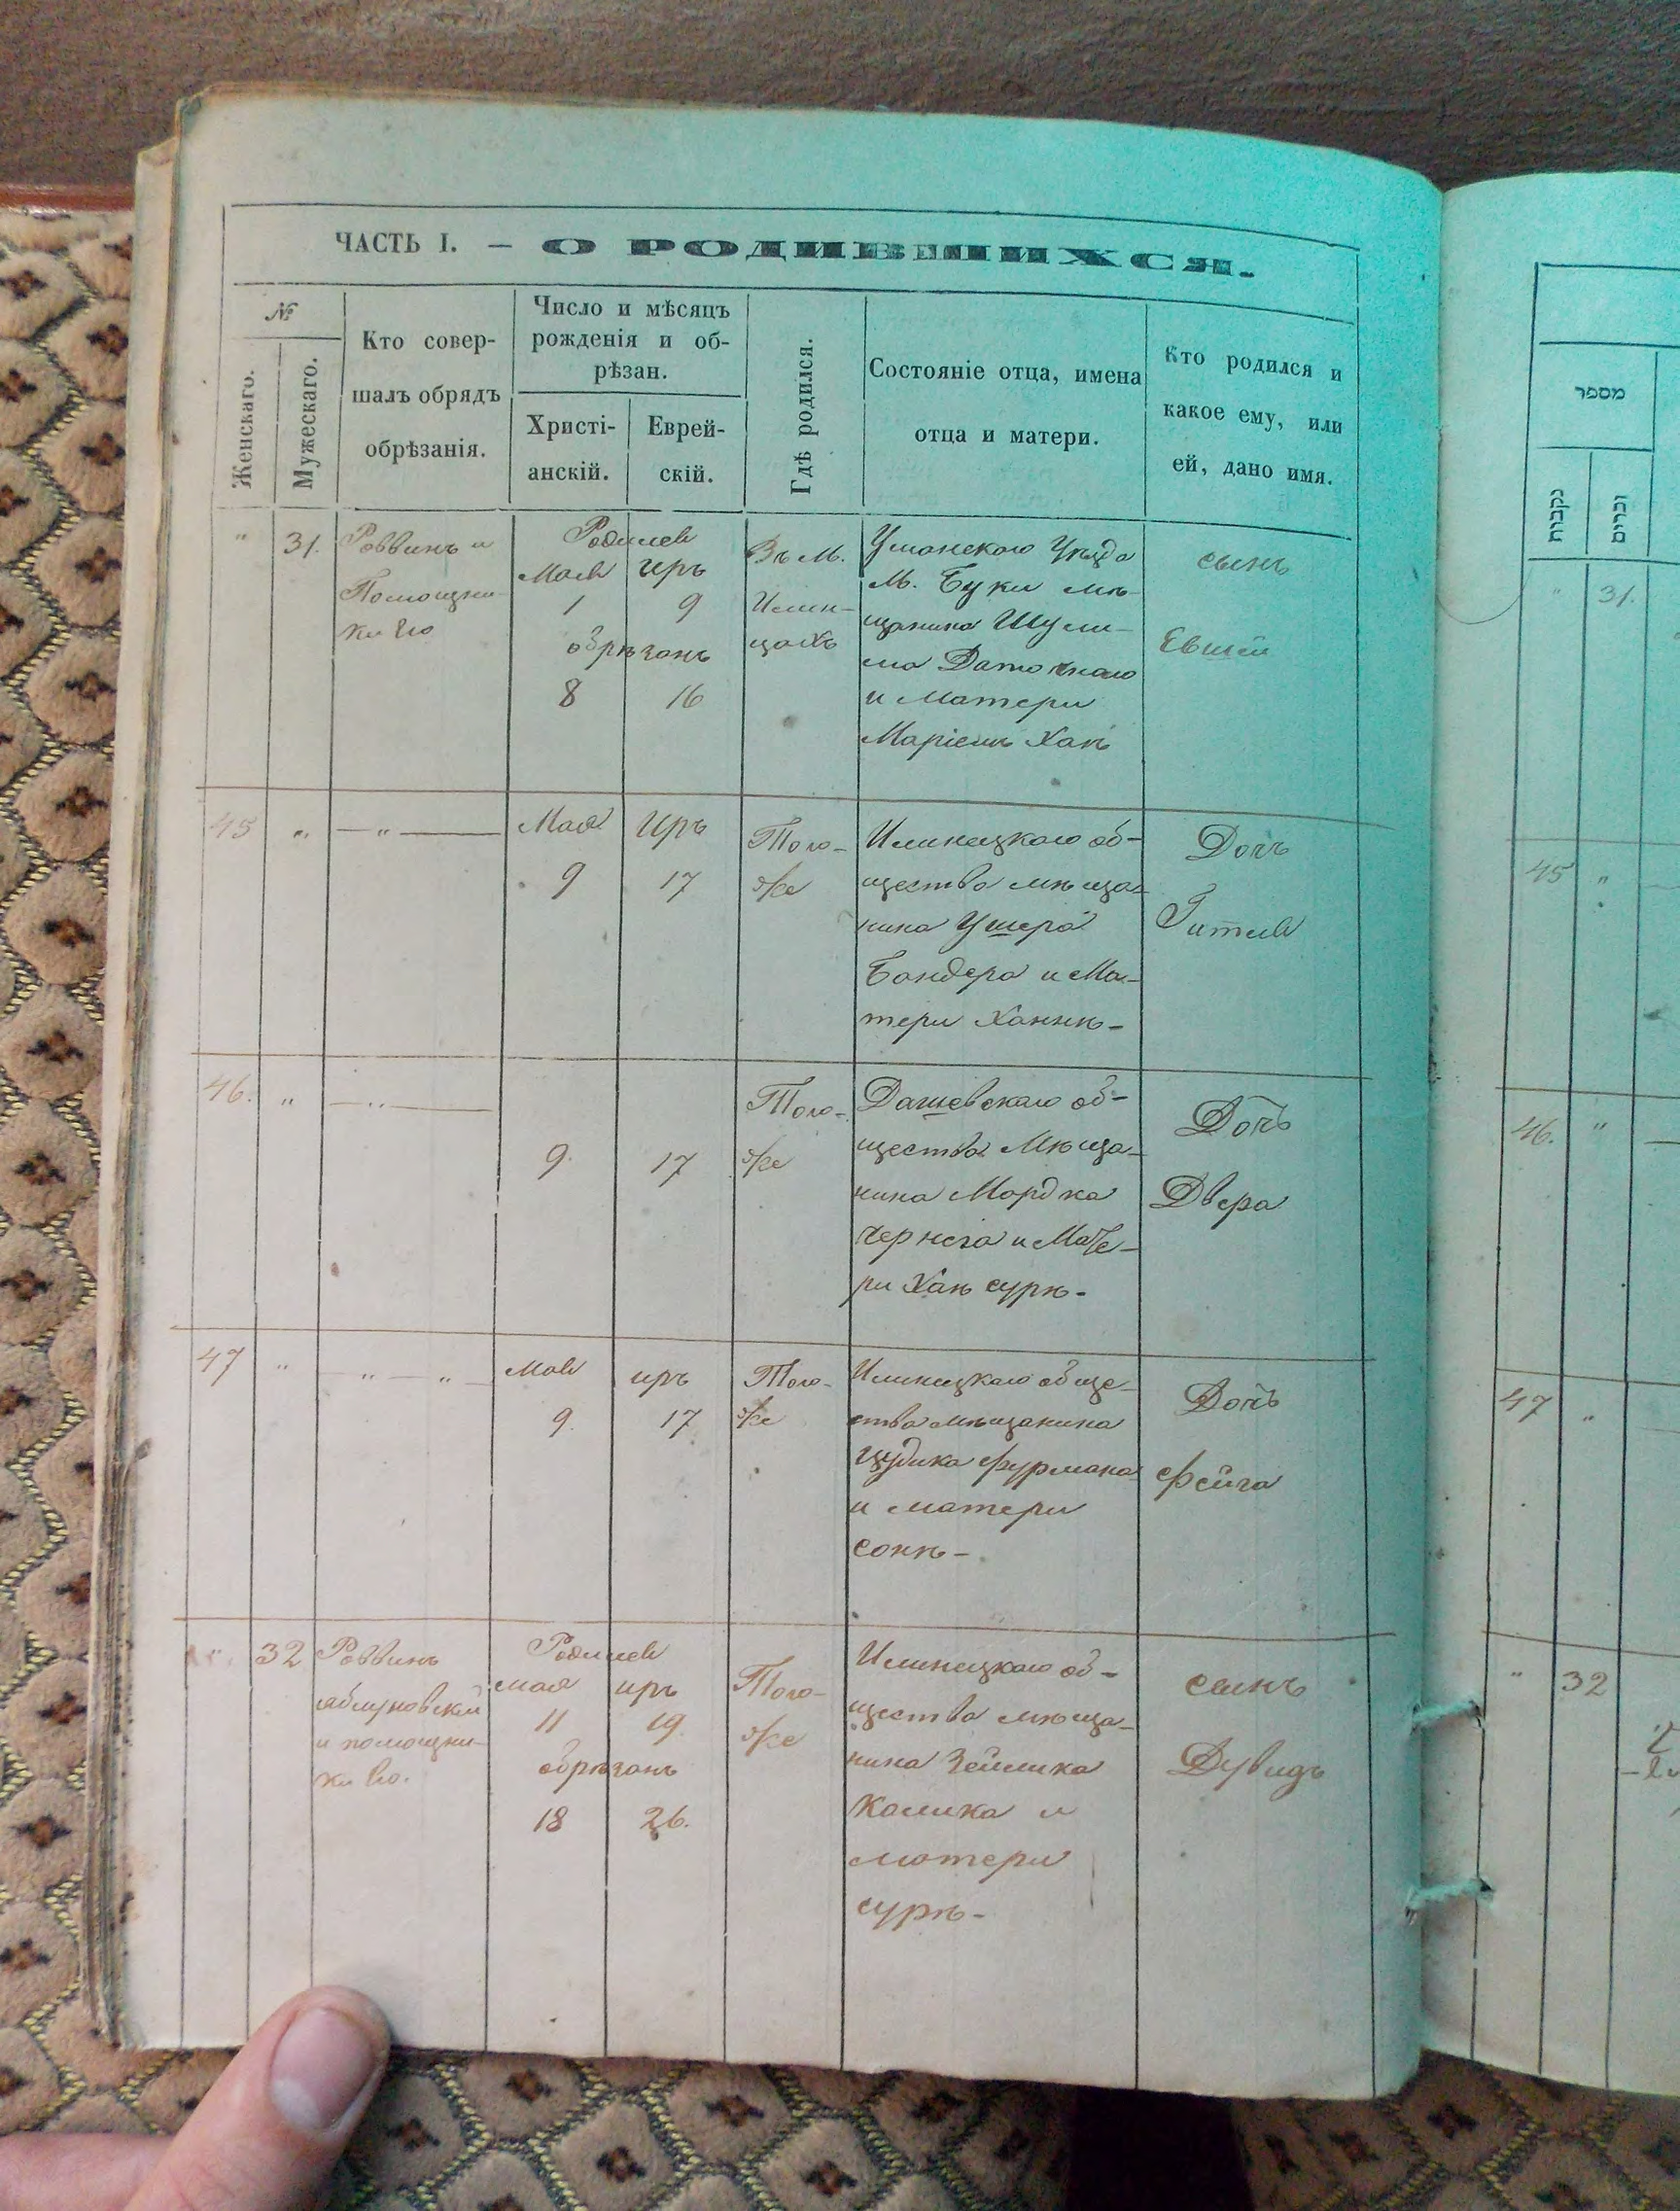 ЧАСТЬ I. — О РОДИВШИХСЯ.
№
Женскаго.
Мужескаго.
Кто совер-
шалъ обрядъ
обрѣзанія.
Число и мѣсяцъ
рожденія и об-
рѣзан.
Христі-
анскій.
Еврей-
скій.
Гдѣ родился.
Состояніе отца, имена
отца и матери.
Кто родился и
какое ему, или
ей, дано имя.
" 31.
Раввинъ и
Помощни-
ки его
Родился
Мая Иръ
1 9
обрѣзанъ
8 16
Въ М.
Илин-
цахъ
Уманскаго Уѣзда
М. Буки мѣ-
щанина Шули-
ма Даточнаго
и Матери
Маріемъ Ханъ
сынъ
Евшей
45 " — " —
Мая Иръ
9 17
Того-
же
Илинецкаго об-
щества мѣща-
нина Ушера
Бондера и Ма-
тери Ханнѣ-
Дочь
Гитля
46. " — " —
9. 17
Того-
же
Дашевскаго об-
щества Мѣща-
нина Мордка
Чернега и Мате-
ри Хаѣ сурѣ-
Дочь
Двера
47 " " — " —
мая иръ
9. 17
Того-
же
Илинецкаго обще-
ства мѣщанина
Цудика Фурмана
и матери
сонѣ-
Дочь
Фейга
" 32
Раввинъ
и помощни-
ки его.
Родился
мая иръ
11 19.
обрѣзанъ
18 26.
Того-
же
Илинецкаго об-
щества мѣща-
нина Зейлика
Колика и
матери
сурѣ-
сынъ
Дувидъ
מספר
נקבות
זכרים
" 31.
45 "
46. "
47 "
" 32